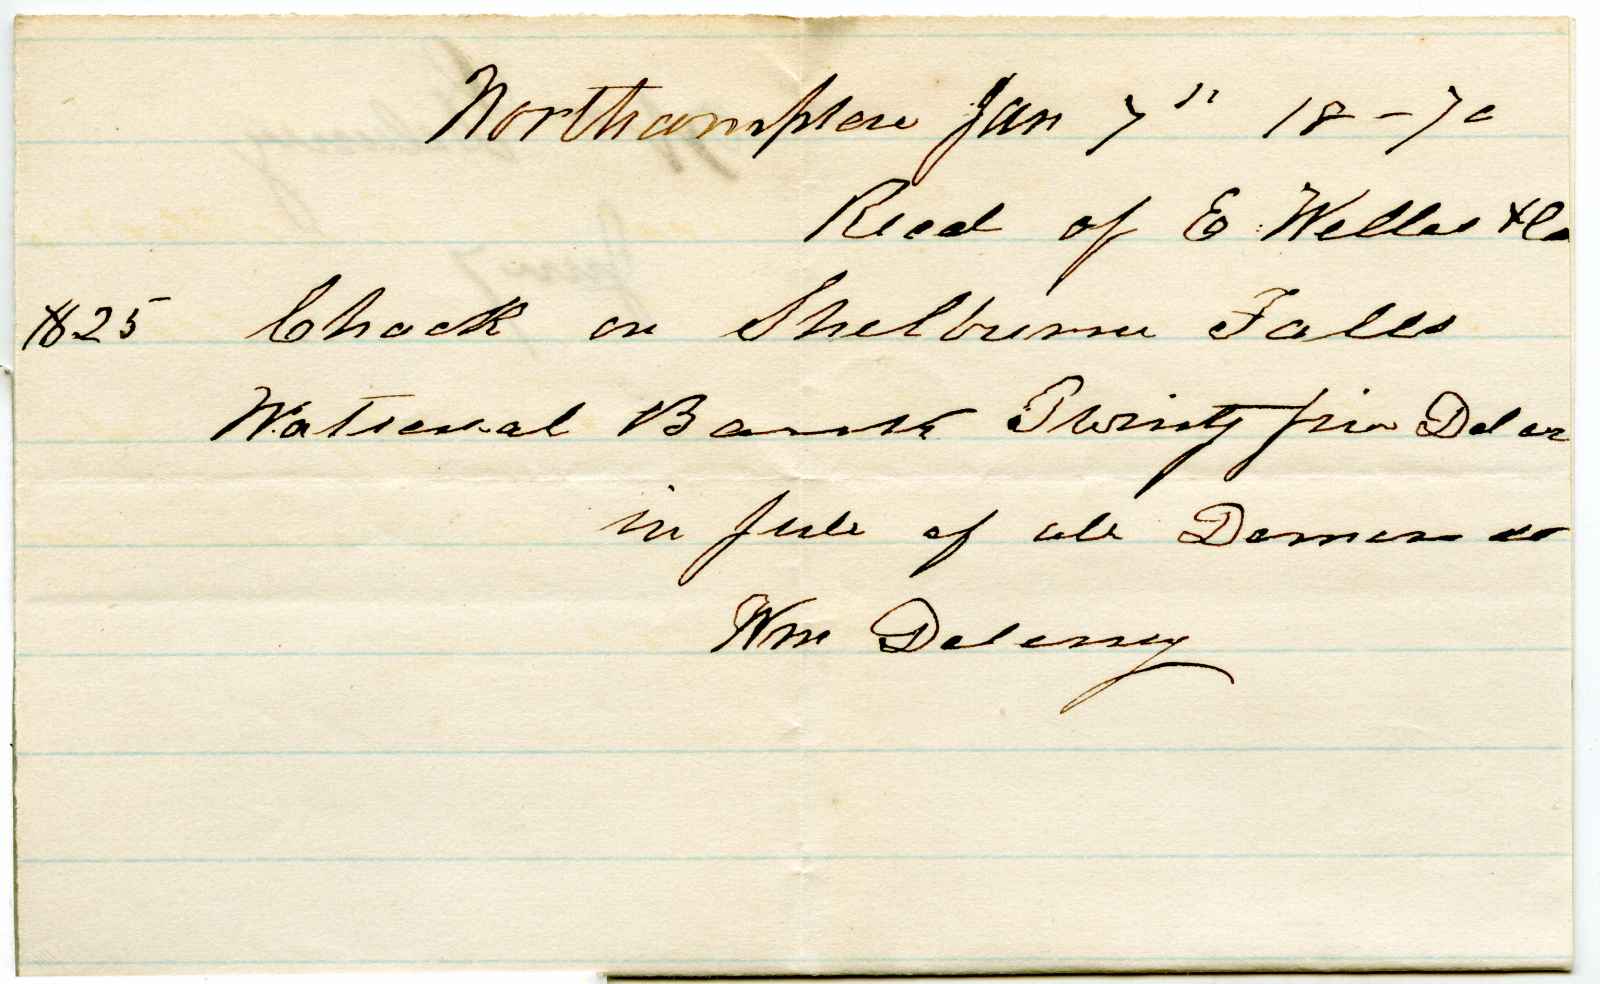 Northampton Jan 7" 18-70
Recd of E Welles & Co
$25 Check on Shelburne Falls
National Bank Twinty five Dolar
in full of all Demands
Wm Delaney